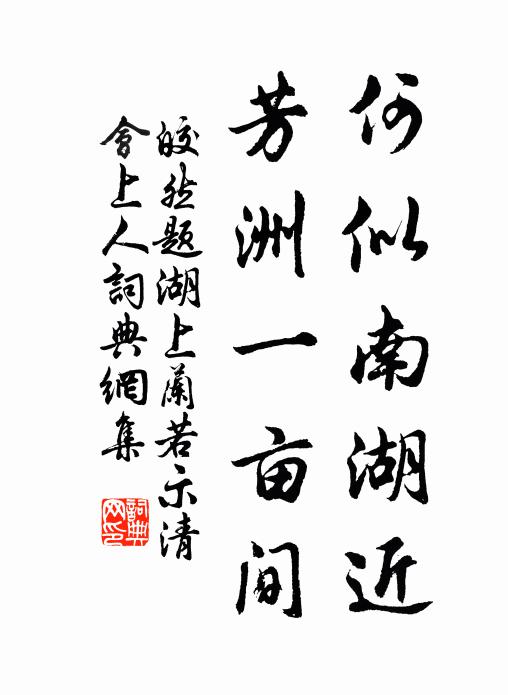 何似南湖近
芳洲一亩间
皎然题湖上蘭若示清
會上人詞典網集
詞典网印